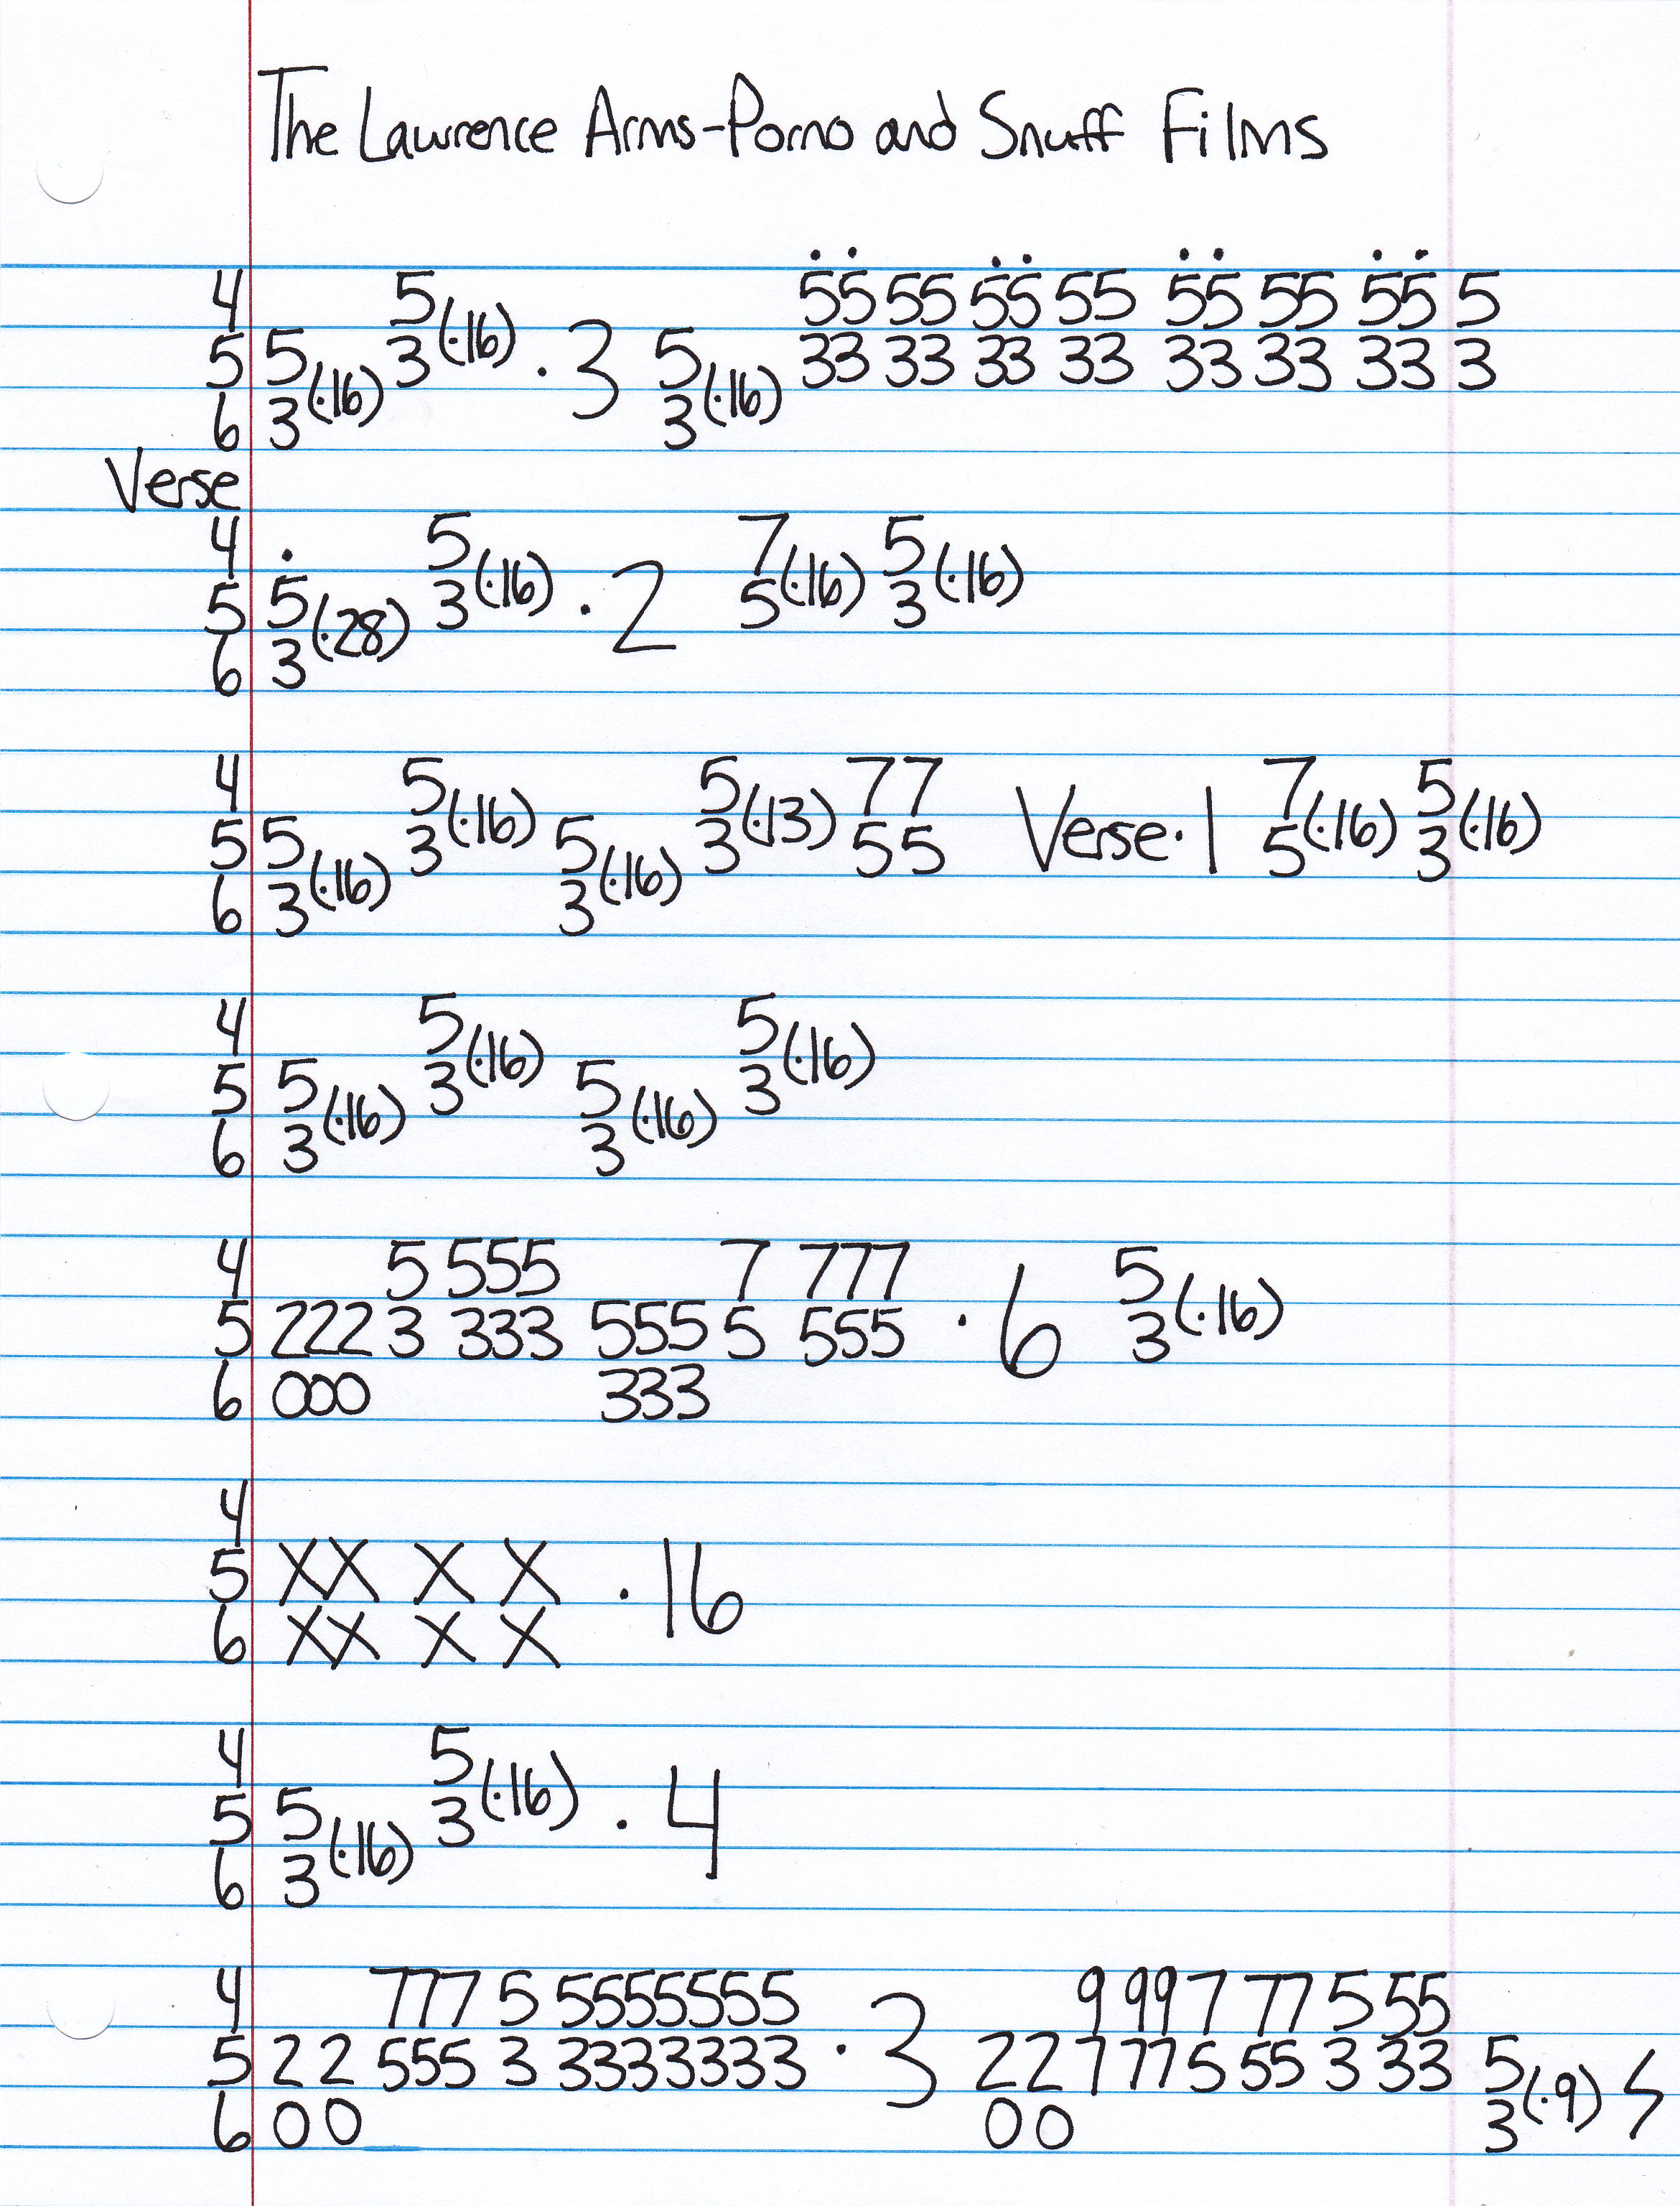 The Lawrence Arms-Porno and Snuff Films
4 5(·16) 55 55 55 55 55 55 55 5
5 5(·16) 3 ·3 5(·16) 33 33 33 33 33 33 33 3
6 3 3
Verse
4 5(·16) 7(·16) 5(·16)
5 5(·28) 3 ·2 5 3
6 3
4 5(·16) 5(·13) 77 7(·16) 5(·16)
5 5(·16) 3 5(·16) 3 55 Verse·1 5 3
6 3 3
4 5(·16) 5(·16)
5 5(·16) 3 5(·16) 3
6 3 3
4 5 555 7 777 5(·16)
5 222 3 333 555 5 555 ·6 3
6 000 333
4
5 XX X X ·16
6 XX X X
4 5(·16)
5 5(·16) 3 ·4
6 3
4 777 5 5555555 9 997 77 5 55
5 2 2 555 3 3333333 ·3 22 7 775 55 3 33 5(·9)
6 0 0 0 0 3